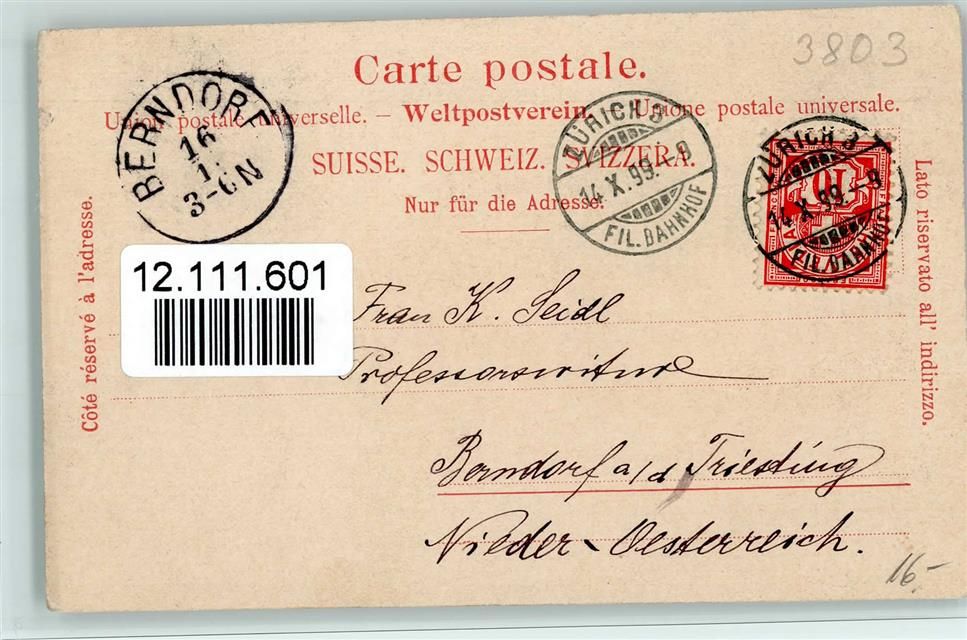 3803
Carte postale.
Union postale universelle. – Weltpostverein. – Unione postale universale.
SUISSE. SCHWEIZ. SVIZZERA.
Nur für die Adresse.
BERNDORF
16
3-6N
ZÜRICH 3
14.X.99.–9
FIL. BAHNHOF
ZÜRICH 3
14.X.99.–9
FIL. BAHNHOF
10
Côté réservé à l'adresse.
Lato riservato all' indirizzo.
12.111.601
Frau K. Seidl
Professorswitwe
Berndorf a/d Triesting
Nieder-Oesterreich.
16-